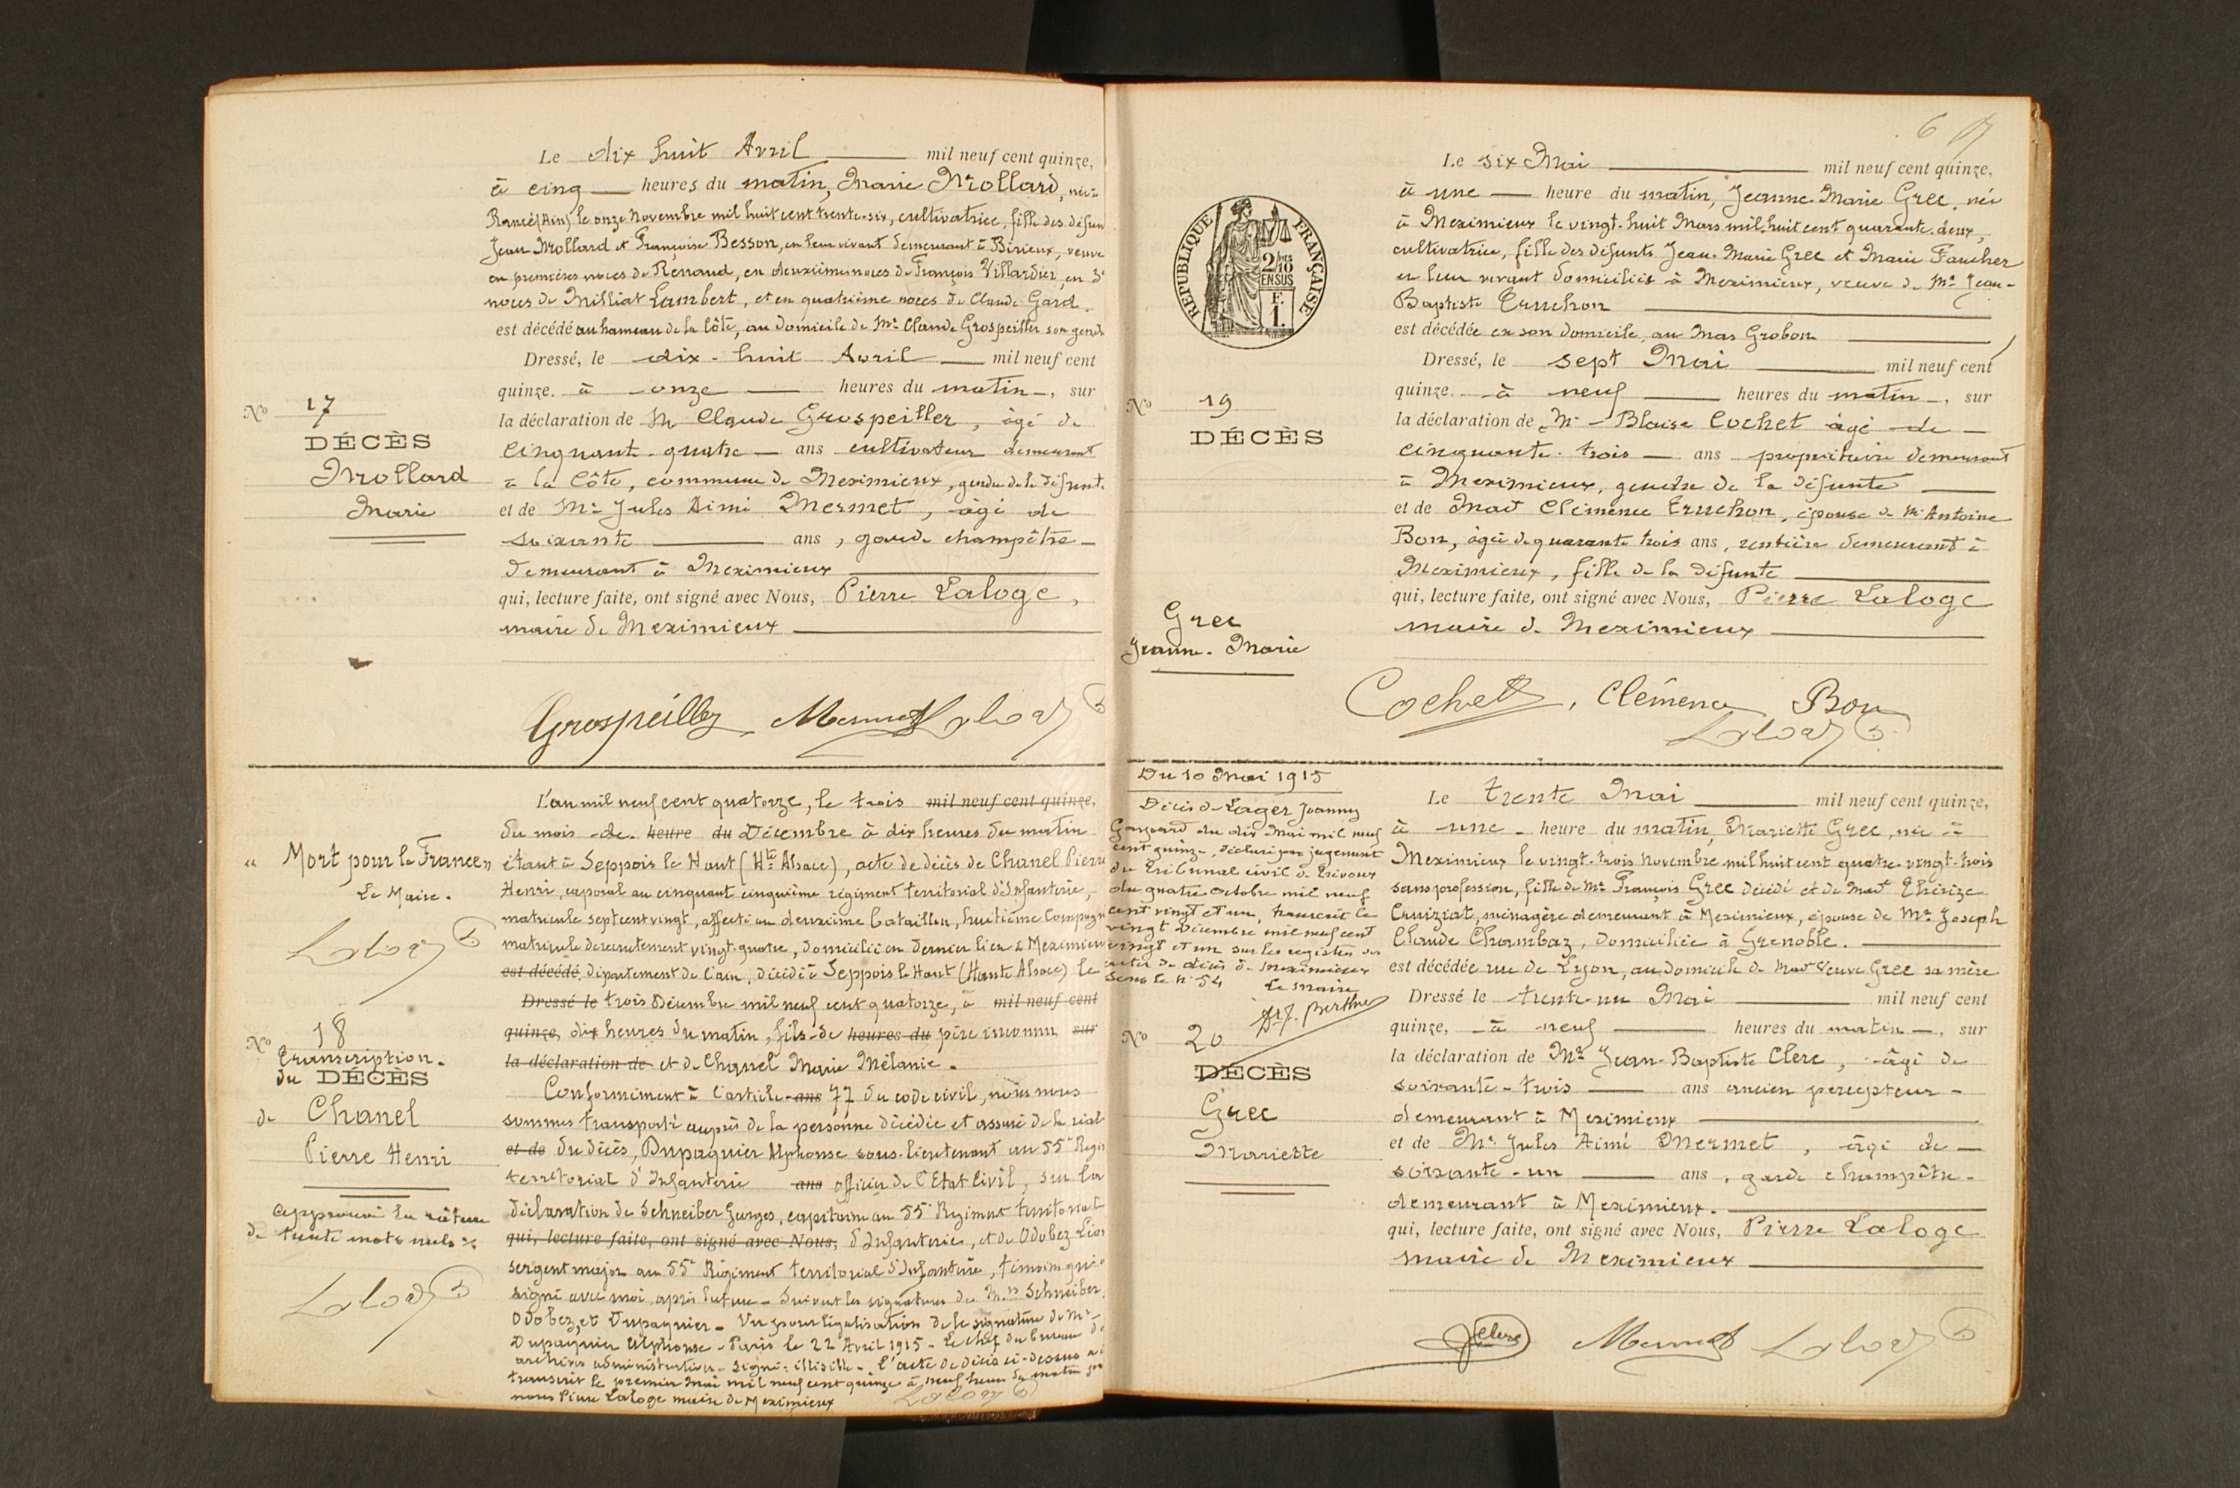 Le dix huit Avril mil neuf cent quinze,
à cinq heures du matin, Marie Mollard, née
Rancé (Ain) le onze Novembre mil huit cent trente-six, cultivatrice, fille des défun
Jean Mollard et Françoise Besson, en leur vivant demeurant à Birieux, veuve
en premières noces de Renaud, en deuxièmes noces de François Villardier, en 3e
noces de Milliat Lambert, et en quatrième noces de Claude Gard.
est décédé au hameau de la Côte, au domicile de Mr Claude Grospeiller son gendr
Dressé, le dix-huit Avril mil neuf cent
quinze à onze heures du matin, sur
la déclaration de M Claude Grospeiller, âgé de
cinquante-quatre ans cultivateur demeurant
à la Côte, commune de Meximieux, gendre de la défunte
et de Mr Jules Aimé Mermet, âgé de
soixante ans, garde champêtre
demeurant à Meximieux
qui, lecture faite, ont signé avec Nous, Pierre Laloge,
maire de Meximieux
No 17
DÉCÈS
Mollard
Marie
Grospeiller Mermet Laloge
L'an mil neuf cent quatorze, le trois mil neuf cent quinze,
du mois de heure du Décembre à dix heures du matin
étant à Seppois le Haut (Hte Alsace), acte de décès de Chanel Pierre
Henri, caporal au cinquant cinquième régiment territorial d'Infanterie,
matricule sept cent vingt, affecté au deuxième bataillon, huitième Compagn
matricule de recrutement vingt-quatre, domicilié en dernier lieu à Meximieu
est décédé, département de l'Ain, décédé à Seppois le Haut (Haute Alsace) le
Dressé le trois Décembre mil neuf cent quatorze, à mil neuf cent
quinze, dix heures du matin, fils de heures du père inconnu sur
la déclaration de et de Chanel Marie Mélanie.
Conformément à l'article ans 77 du code civil, nous nous
sommes transporté auprès de la personne décédée et assuré de la réal
et de du décès, Dupaquier Alphonse sous-lieutenant au 55e Régi
territorial d'Infanterie ans officier de l'Etat Civil, sur la
déclaration de Schneiber Georges, capitaine au 55e Régiment territorial
qui, lecture faite, ont signé avec Nous, d'Infanterie, et de Odobez Léon
sergent major au 55e Régiment territorial d'Infanterie, témoins qui o
signé avec moi après lecture - Suivent les signatures de M.rs Schneiber,
Odobez, et Dupaquier - Vu pour légalisation de la signature de Mr
Dupaquier Alphonse - Paris le 22 Avril 1915 - Le chef du bureau de
archives administratives - Signé: illisible - L'acte de décès ci-dessus a
transcrit le premier Mai mil neuf cent quinze à neuf heures du matin par
nous Pierre Laloge maire de Meximieux
Laloge
« Mort pour la France »
Le Maire.
Laloge
No 18
Transcription
du DÉCÈS
de Chanel
Pierre Henri
Approuvé la rature
de trente mots nuls
Laloge
6
Le six Mai mil neuf cent quinze,
à une heure du matin, Jeanne-Marie Grec, née
à Meximieux le vingt-huit Mars mil huit cent quarante-deux,
cultivatrice, fille des défunts Jean-Marie Grec et Marie Faucher
en leur vivant domiciliés à Meximieux, veuve de Mr Jean-
Baptiste Truchon
est décédée en son domicile, au Mas Grobon
Dressé, le sept Mai mil neuf cent
quinze à neuf heures du matin, sur
la déclaration de Mr Blaise Cochet âgé de
cinquante-trois ans propriétaire demeurant
à Meximieux, gendre de la défunte
et de Mad Clémence Truchon, épouse de Mr Antoine
Bon, âgée de quarante trois ans, rentière demeurant à
Meximieux, fille de la défunte
qui, lecture faite, ont signé avec Nous, Pierre Laloge
maire de Meximieux
RÉPUBLIQUE FRANÇAISE
2/10
EN SUS
F.
1.
No 19
DÉCÈS
Grec
Jeanne-Marie
Cochet, Clémence Bon
Laloge
Du 10 Mai 1915
Décès de Lager Joanny
Gaspard du dix Mai mil neuf
cent quinze, déclaré par jugement
du Tribunal civil de Trévoux
du quatre octobre mil neuf
cent vingt et un, transcrit le
vingt décembre mil neuf cent
vingt et un sur les registres des
actes de décès de Meximieux
sous le n° 54 Le Maire
Berthe
No 20
DÉCÈS
Grec
Mariette
Le trente Mai mil neuf cent quinze,
à une heure du matin, Mariette Grec, née à
Meximieux le vingt-trois Novembre mil huit cent quatre-vingt-trois
sans profession, fille de Mr François Grec décédé et de Mad Thérèze
Cruiziat, ménagère demeurant à Meximieux, épouse de Mr Joseph
Claude Chambaz, domiciliée à Grenoble.
est décédée rue de Lyon, au domicile de Mad Veuve Grec sa mère
Dressé le trente-un Mai mil neuf cent
quinze, à neuf heures du matin, sur
la déclaration de Mr Jean-Baptiste Clerc, âgé de
soixante-trois ans ancien percepteur
demeurant à Meximieux
et de Mr Jules Aimé Mermet, âgé de
soixante-un ans, garde champêtre
demeurant à Meximieux.
qui, lecture faite, ont signé avec Nous, Pierre Laloge
maire de Meximieux
Clerc Mermet Laloge